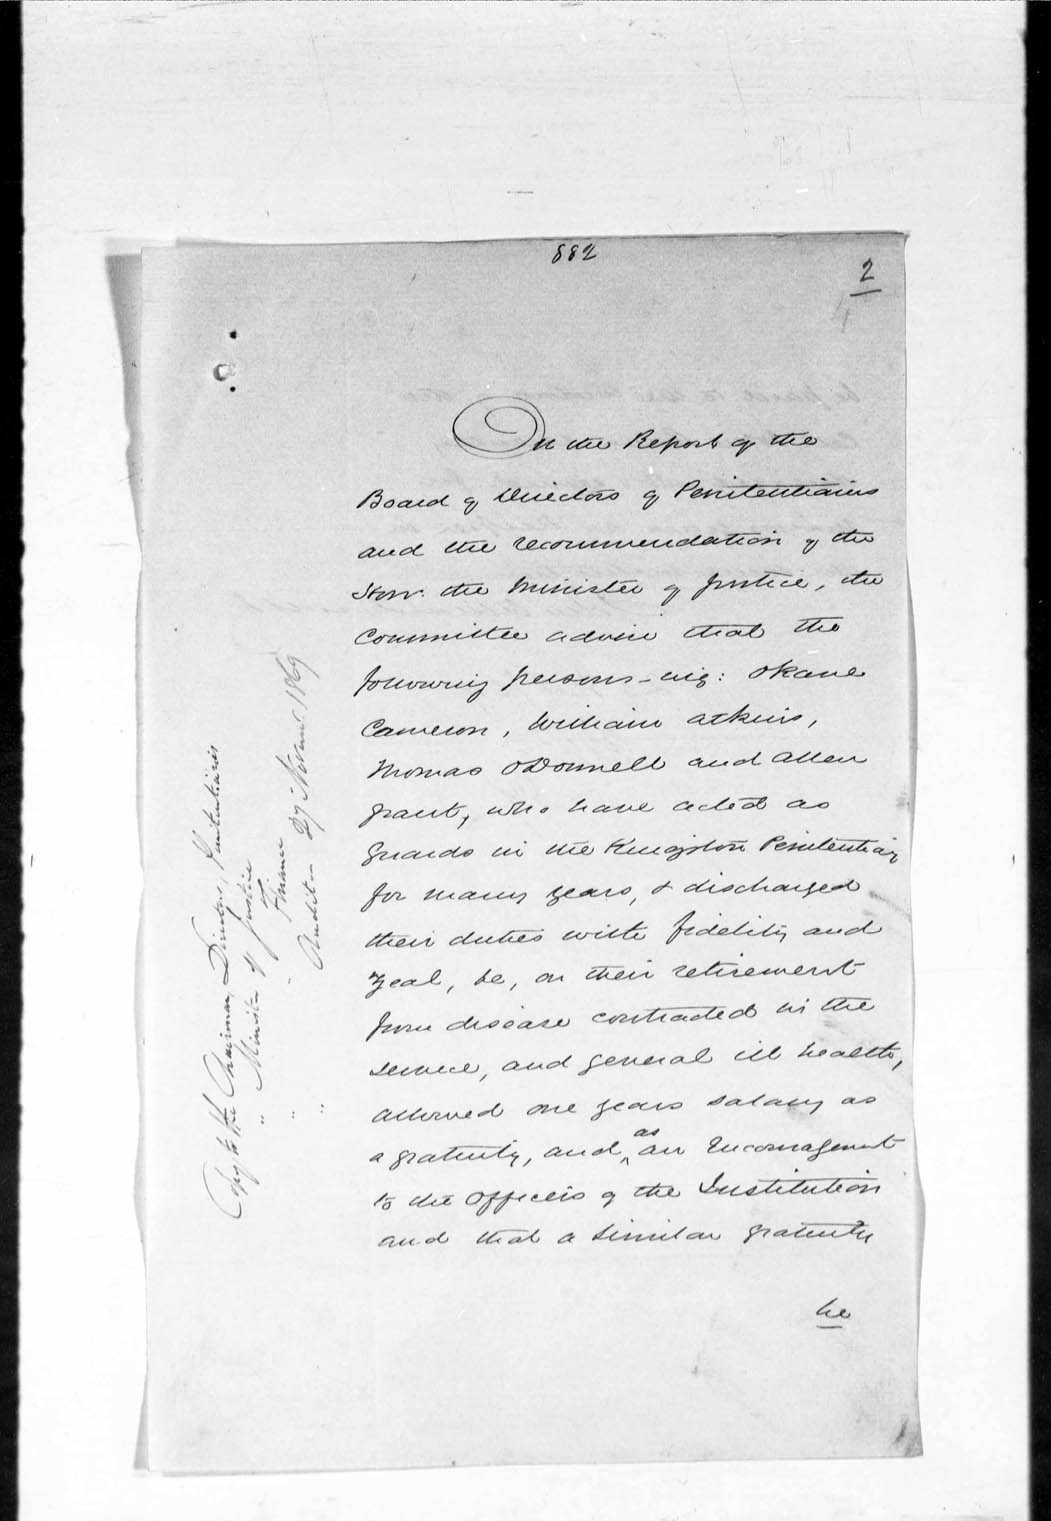 882
2
On the Report of the
Board of Directors of Penitentiaries
and the recommendation of the
Honr. the Minister of Justice, the
Committee advise that the
following persons - viz: OKane
Cameron, William Atkins,
Thomas ODonnell and Allen
Grant, who have acted as
Guards in the Kingston Penitentiary
for many years, & discharged
their duties with fidelity and
Zeal, be, on their retirement
from disease contracted in the
service, and general ill health,
allowed one years salary as
a gratuity, and as an Encouragement
to the Officers of the Institution
and that a similar gratuity
be
Copy to the Chairman, Directors, Penitentiaries
" Minister of Justice
" " Finance
" Auditor Novem. 1869